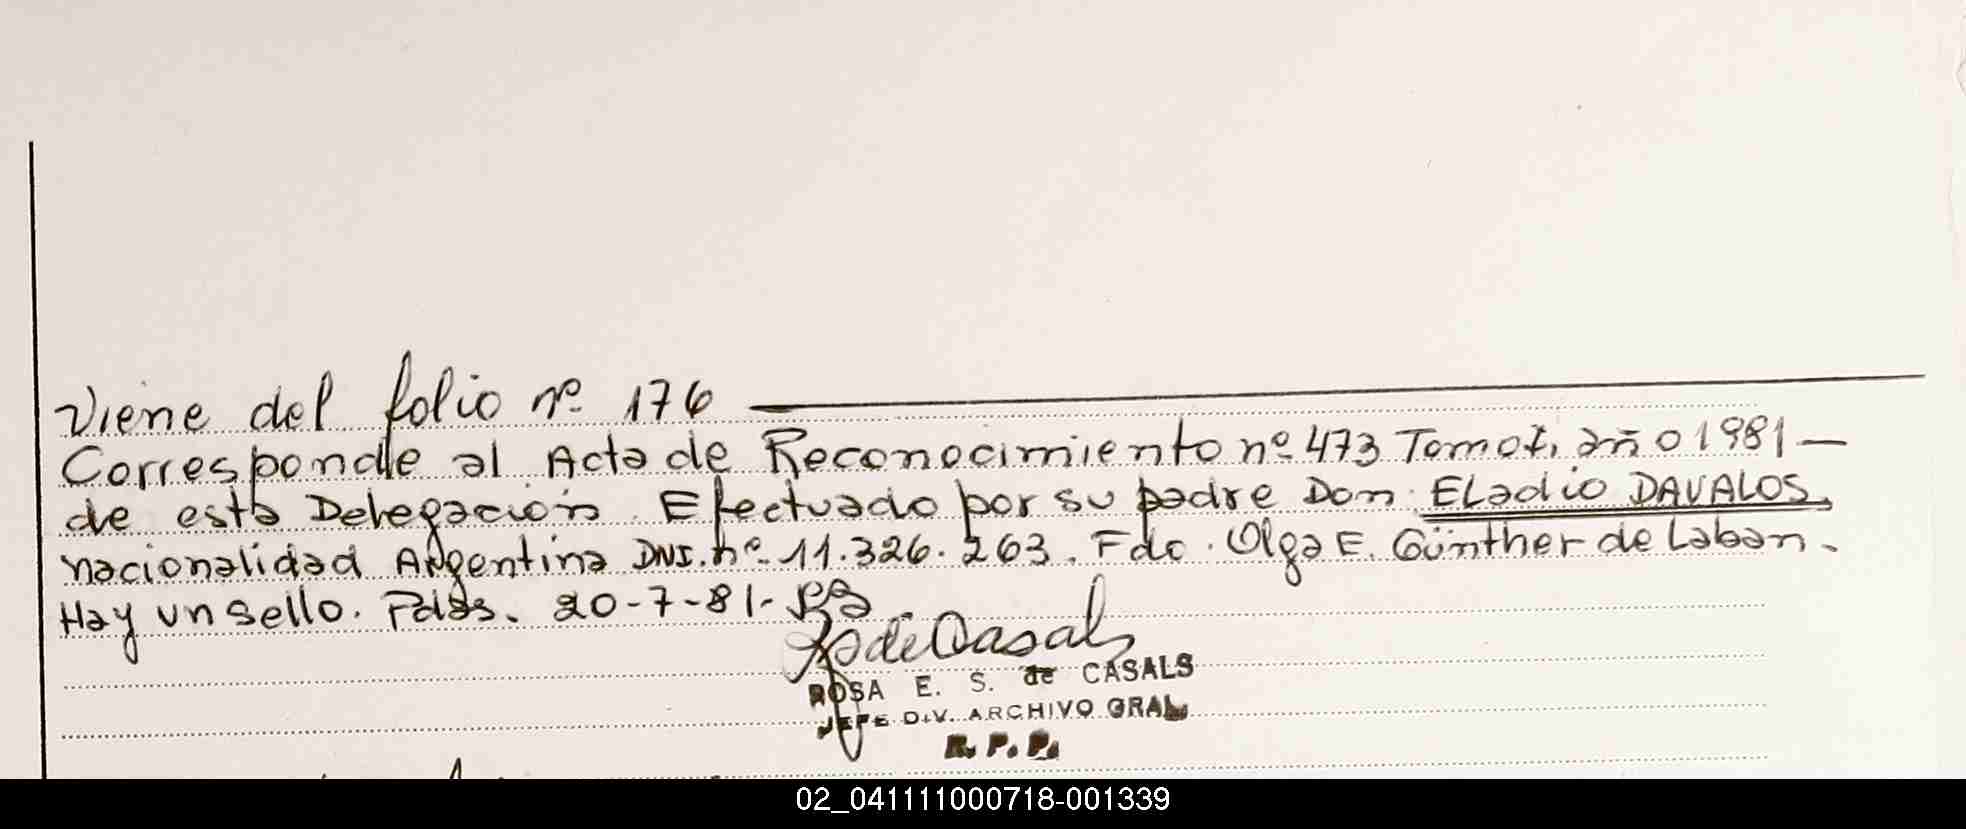 Viene del folio nº 176
Corresponde al Acta de Reconocimiento nº 473 Tomo I, año 1981 —
de esta Delegación. Efectuado por su padre Don: ELadio DAVALOS,
nacionalidad Argentina DNI. nº 11.326.263. Fdo. Olga E. Günther de Laban.
Hay un sello. Pdas. 20-7-81-
de Casals
ROSA E. S. de CASALS
JEFE DIV. ARCHIVO GRAL
R. P. P.
02_041111000718-001339